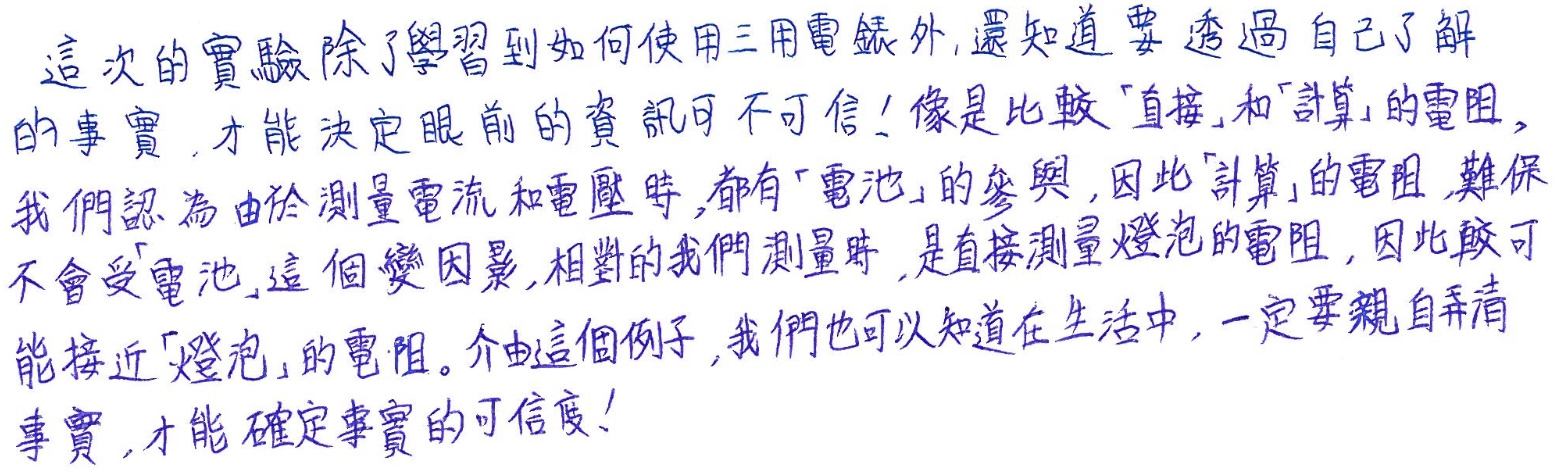 這次的實驗除了學習到如何使用三用電錶外,還知道要透過自己了解
的事實,才能決定眼前的資訊可不可信!像是比較「直接」和「計算」的電阻,
我們認為由於測量電流和電壓時,都有「電池」的參與,因此「計算」的電阻,難保
不會受「電池」這個變因影,相對的我們測量時,是直接測量燈泡的電阻,因此較可
能接近「燈泡」的電阻。介由這個例子,我們也可以知道在生活中,一定要親自弄清
事實,才能確定事實的可信度!